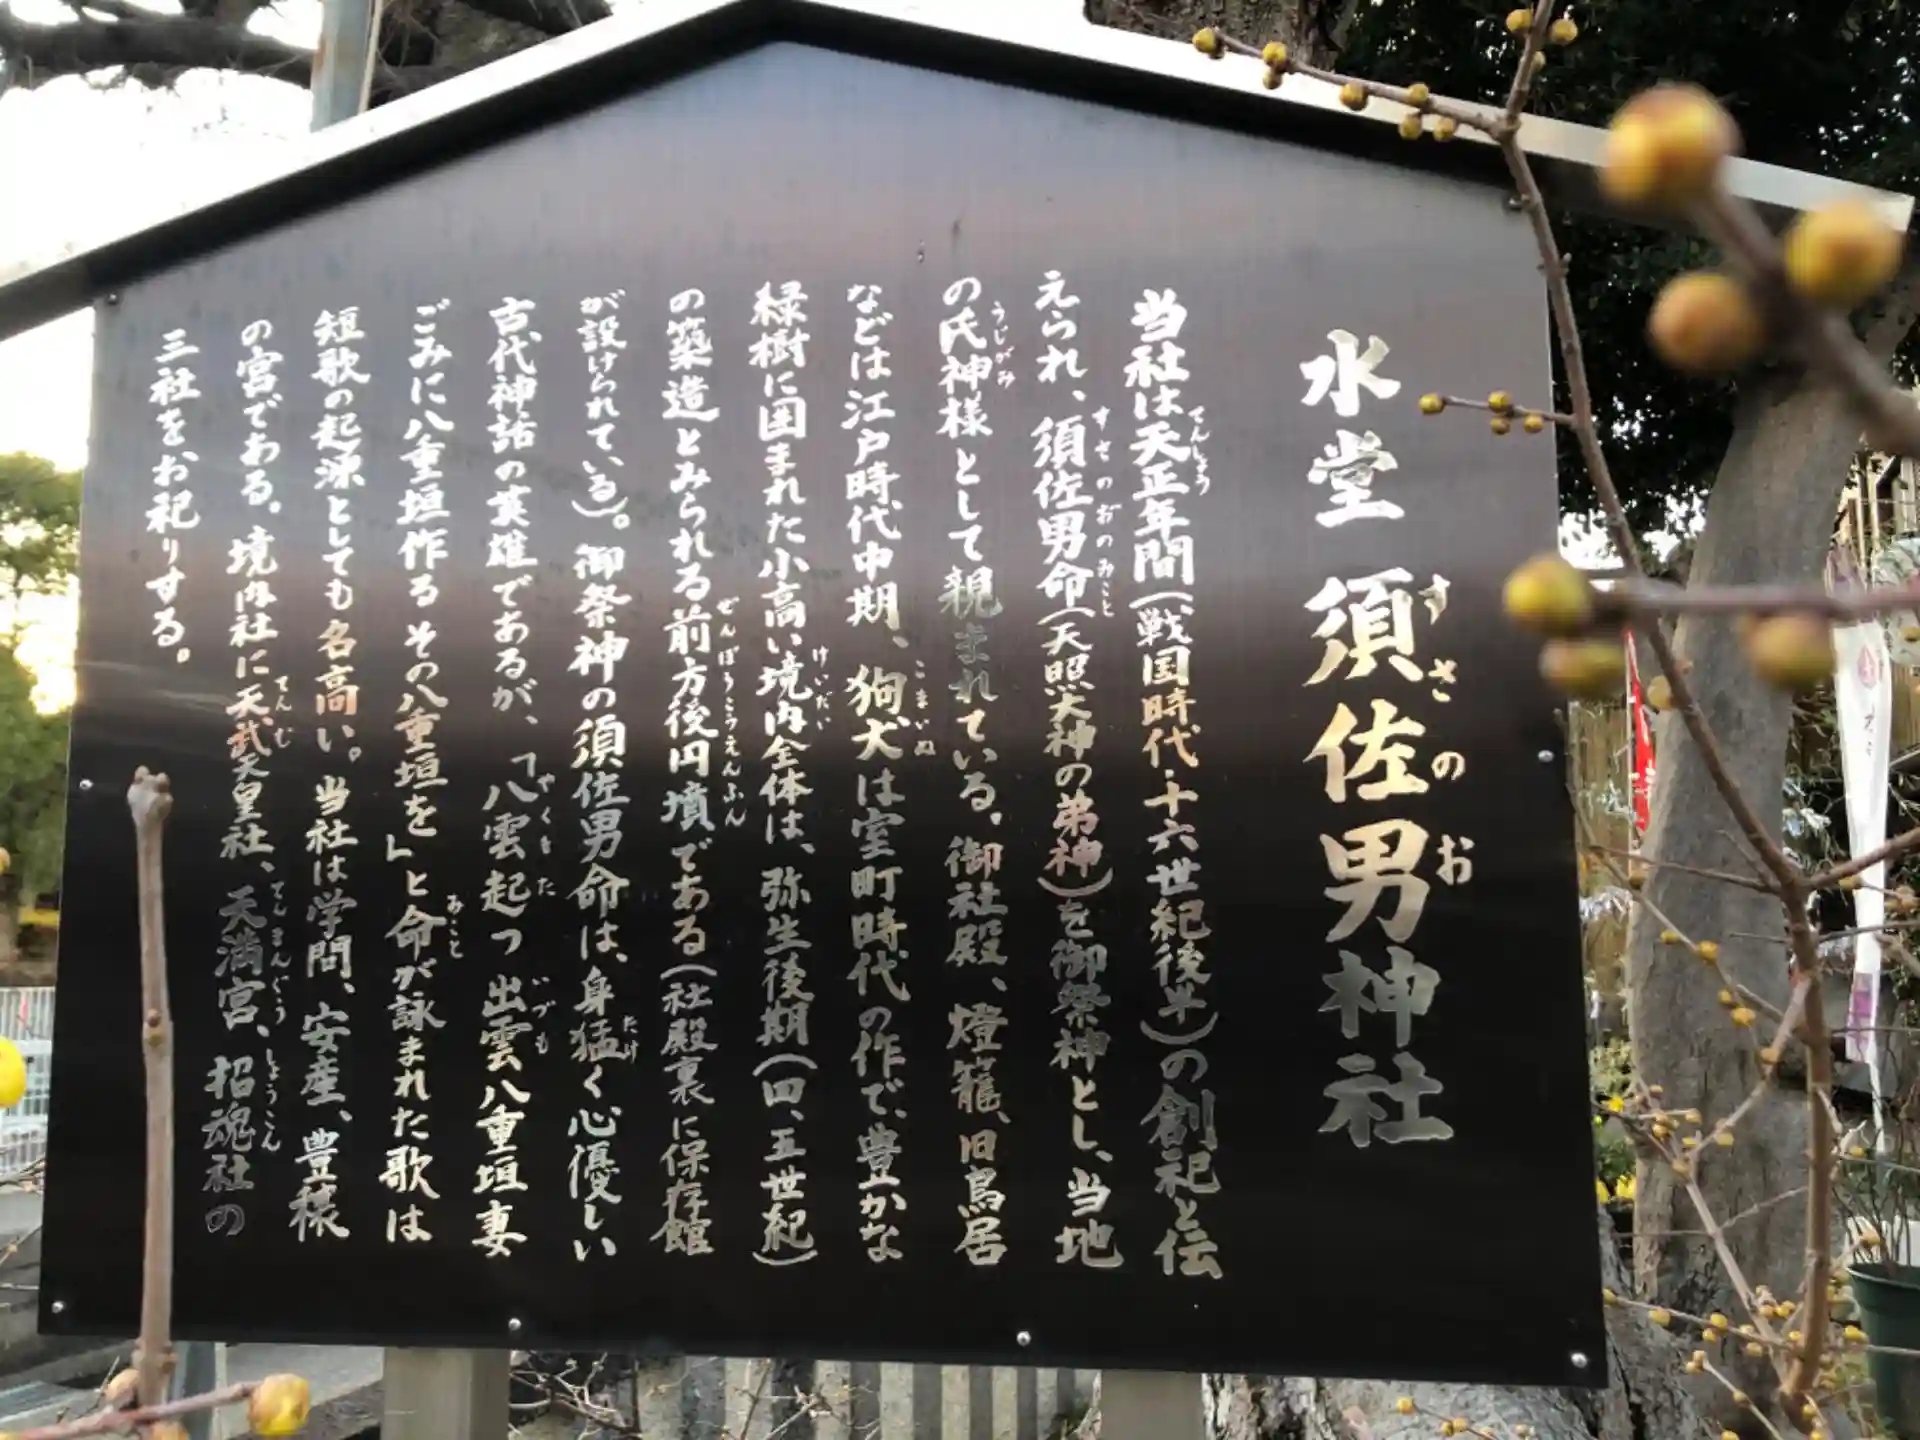 水堂 須佐男神社
すさのお
当社は天正年間(戦国時代・十六世紀後半)の創祀と伝
てんしょう
えられ、須佐男命(天照大神の弟神)を御祭神とし、当地
すさのおのみこと
の氏神様として親まれている。御社殿、燈籠、旧鳥居
うじがみ
などは江戸時代中期、狗犬は室町時代の作で、豊かな
こまいぬ
緑樹に囲まれた小高い境内全体は、弥生後期(四、五世紀)
けいだい
の築造とみられる前方後円墳である(社殿裏に保存館
ぜんぽうこうえんふん
が設けられている)。御祭神の須佐男命は、身猛く心優しい
たけ
古代神話の英雄であるが、「八雲起つ 出雲八重垣妻
やくもた いづも
ごみに八重垣作るその八重垣を」と命が詠まれた歌は
みこと
短歌の起源としても名高い。当社は学問、安産、豊穣
の宮である。境内社に天武天皇社、天満宮、招魂社の
てんむ てんまんぐう しょうこん
三社を、お祀りする。